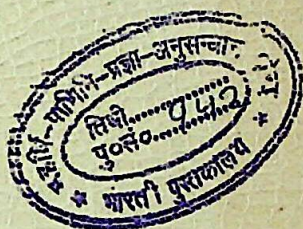 महर्षि-पाणिनि-प्रज्ञा-अनुसन्धान
तिथी..............
पु०सं०....१५२......
* भारती पुस्तकालय *